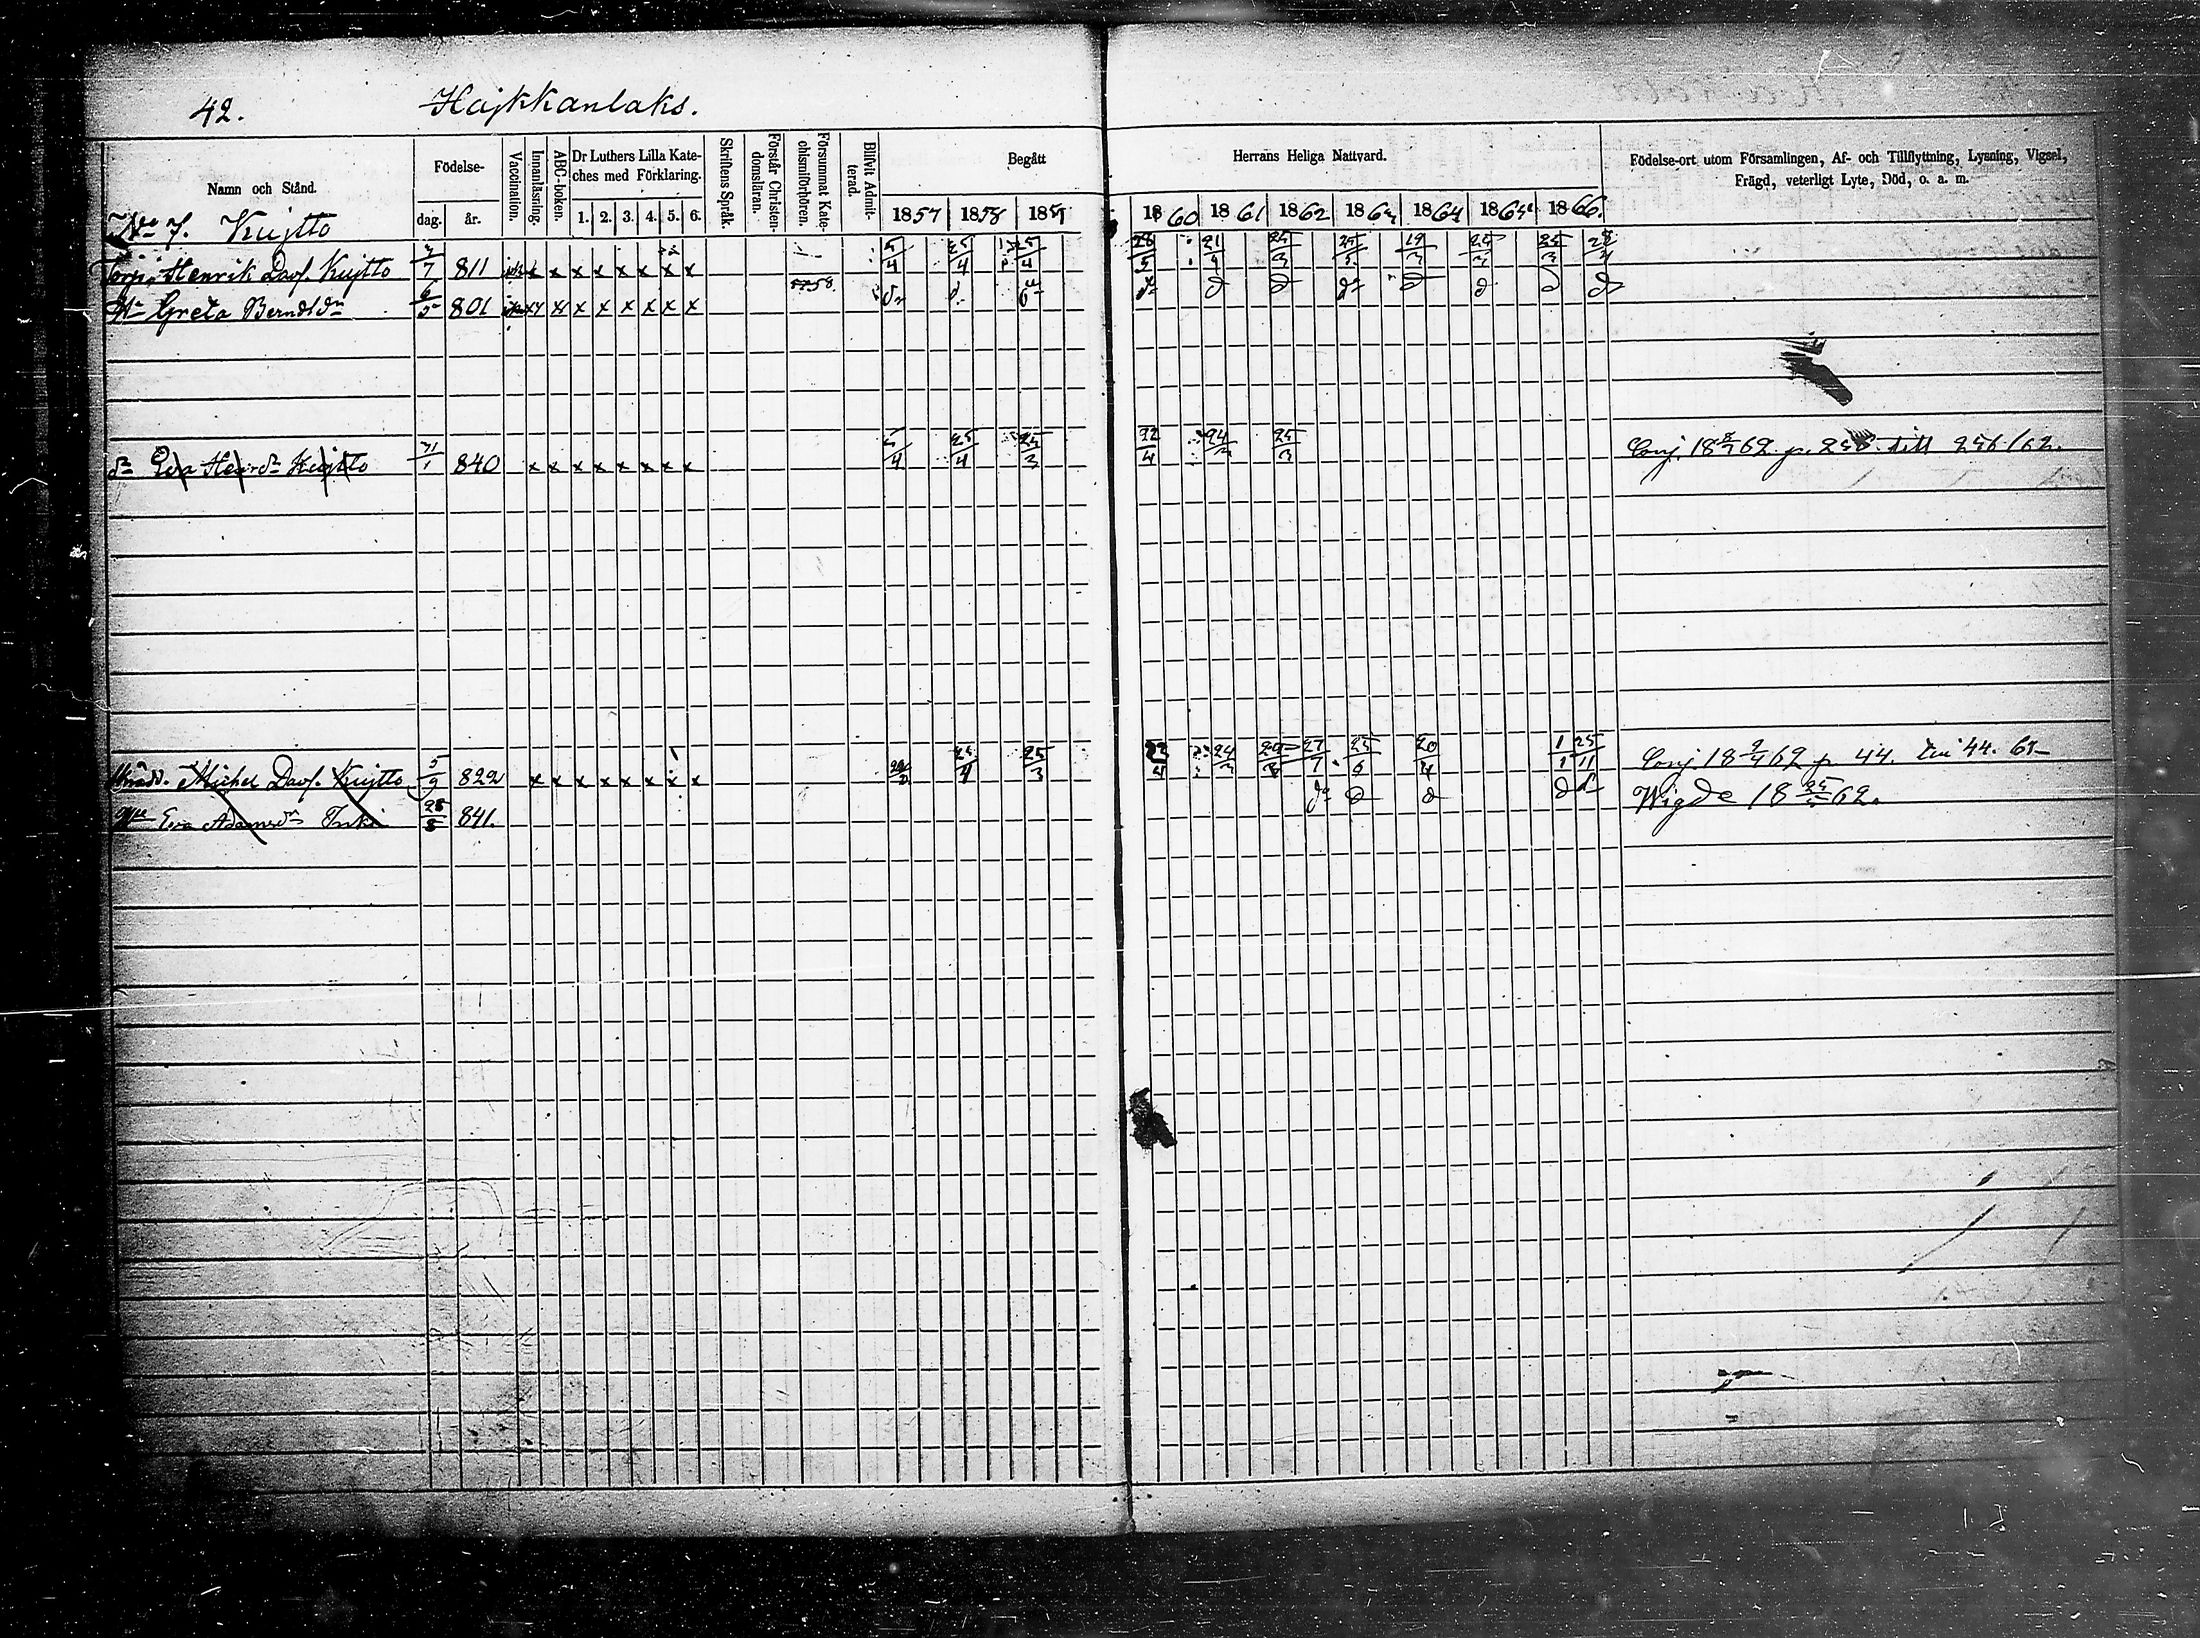 42. Hajkkanlaks.
Namn och Stånd.
Födelse-
dag. år.
Vaccination.
Innanläsning.
ABC-boken.
Dr Luthers Lilla Kate-
ches med Förklaring.
1. 2. 3. 4. 5. 6.
Skriftens Språk.
Förstår Christen-
domsläran.
Försummat Kate-
chismiförhören.
Blifvit Admit-
terad.
Begått Herrans Heliga Nattvard.
1857 1858 1859 1860 1861 1862 1863 1864 1865 1866.
Födelse-ort utom Församlingen, Af- och Tillflyttning, Lysning, Vigsel,
Frägd, veterligt Lyte, Död, o. a. m.
No 7. Kujtto
Henrik Davs. Kujtto 811 x x x x x x x 5/4 25/4 25/4 28/5 21/4 25/3 19/3 25/3 25/3
58.
Hu Greta Berndtdr 6/5 801 x x x x x x
dr Eva Henrdr Kujtto 840 x x x x x x x x 5/4 25/4 25/3 22/4 24/3 25/3 Conj. 18 62 p. till 256/62.
Michel Davs. Kujtto 5/9 822 x x x x x x x x 25/4 25/3 22/4 24/3 27/7 25/6 20/4 1/1 25/11 Conj. 18 9/4 62 p. 44.
Hu Eva Adamsdr Inki 28/8 841. Wigde 18 25/5 62.